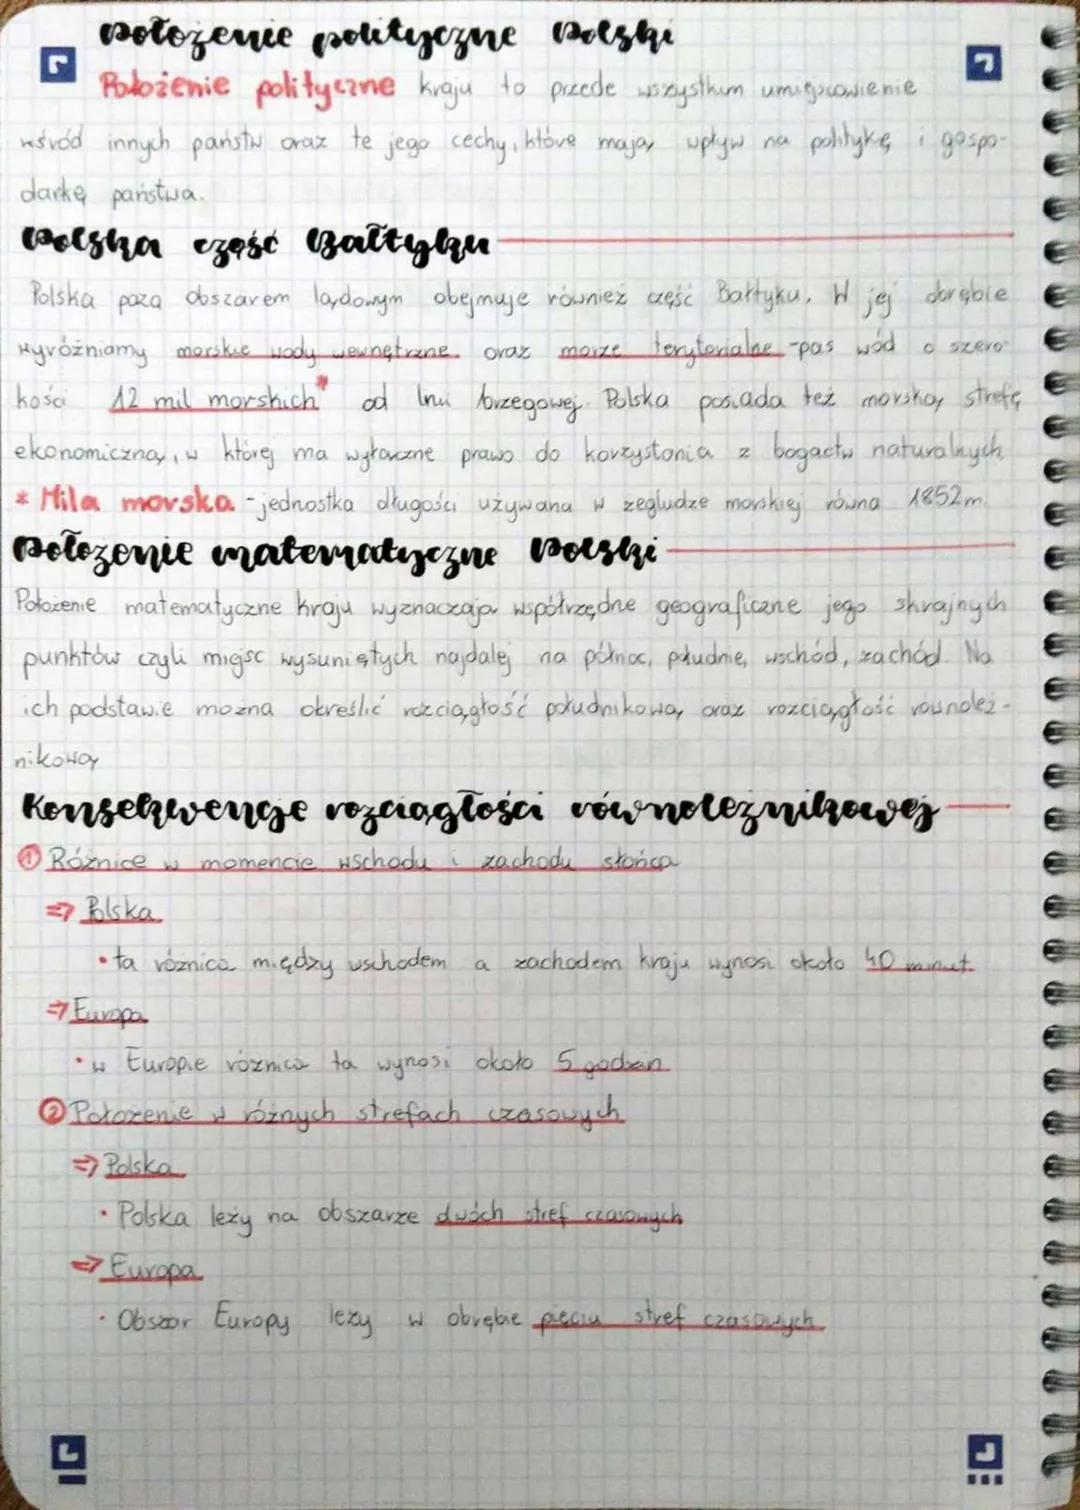 Położenie polityczne Polski
Położenie polityczne kraju to przede wszystkim umiejscowienie
wśród innych państw oraz te jego cechy, które mają wpływ na politykę i gospo-
darkę państwa.
Polska część Bałtyku
Polska poza obszarem lądowym obejmuje również część Bałtyku. W jej obrębie
wyróżniamy morskie wody wewnętrzne oraz morze terytorialne - pas wód o szero-
kości 12 mil morskich* od linii brzegowej. Polska posiada też morską strefę
ekonomiczną, w której ma wyłączne prawo do korzystania z bogactw naturalnych.
* Mila morska - jednostka długości używana w żegludze morskiej równa 1852m.
Położenie matematyczne Polski
Położenie matematyczne kraju wyznaczają współrzędne geograficzne jego skrajnych
punktów czyli miejsc wysuniętych najdalej na północ, południe, wschód, zachód. Na
ich podstawie można określić rozciągłość południkową oraz rozciągłość równoleż-
nikową
Konsekwencje rozciągłości równoleżnikowej
① Różnice w momencie wschodu i zachodu słońca
=> Polska
• ta różnica między wschodem a zachodem kraju wynosi około 40 minut.
=> Europa
• w Europie różnica ta wynosi około 5 godzin
② Położenie w różnych strefach czasowych
=> Polska
• Polska leży na obszarze dwóch stref czasowych
=> Europa
• Obszar Europy leży w obrębie pięciu stref czasowych